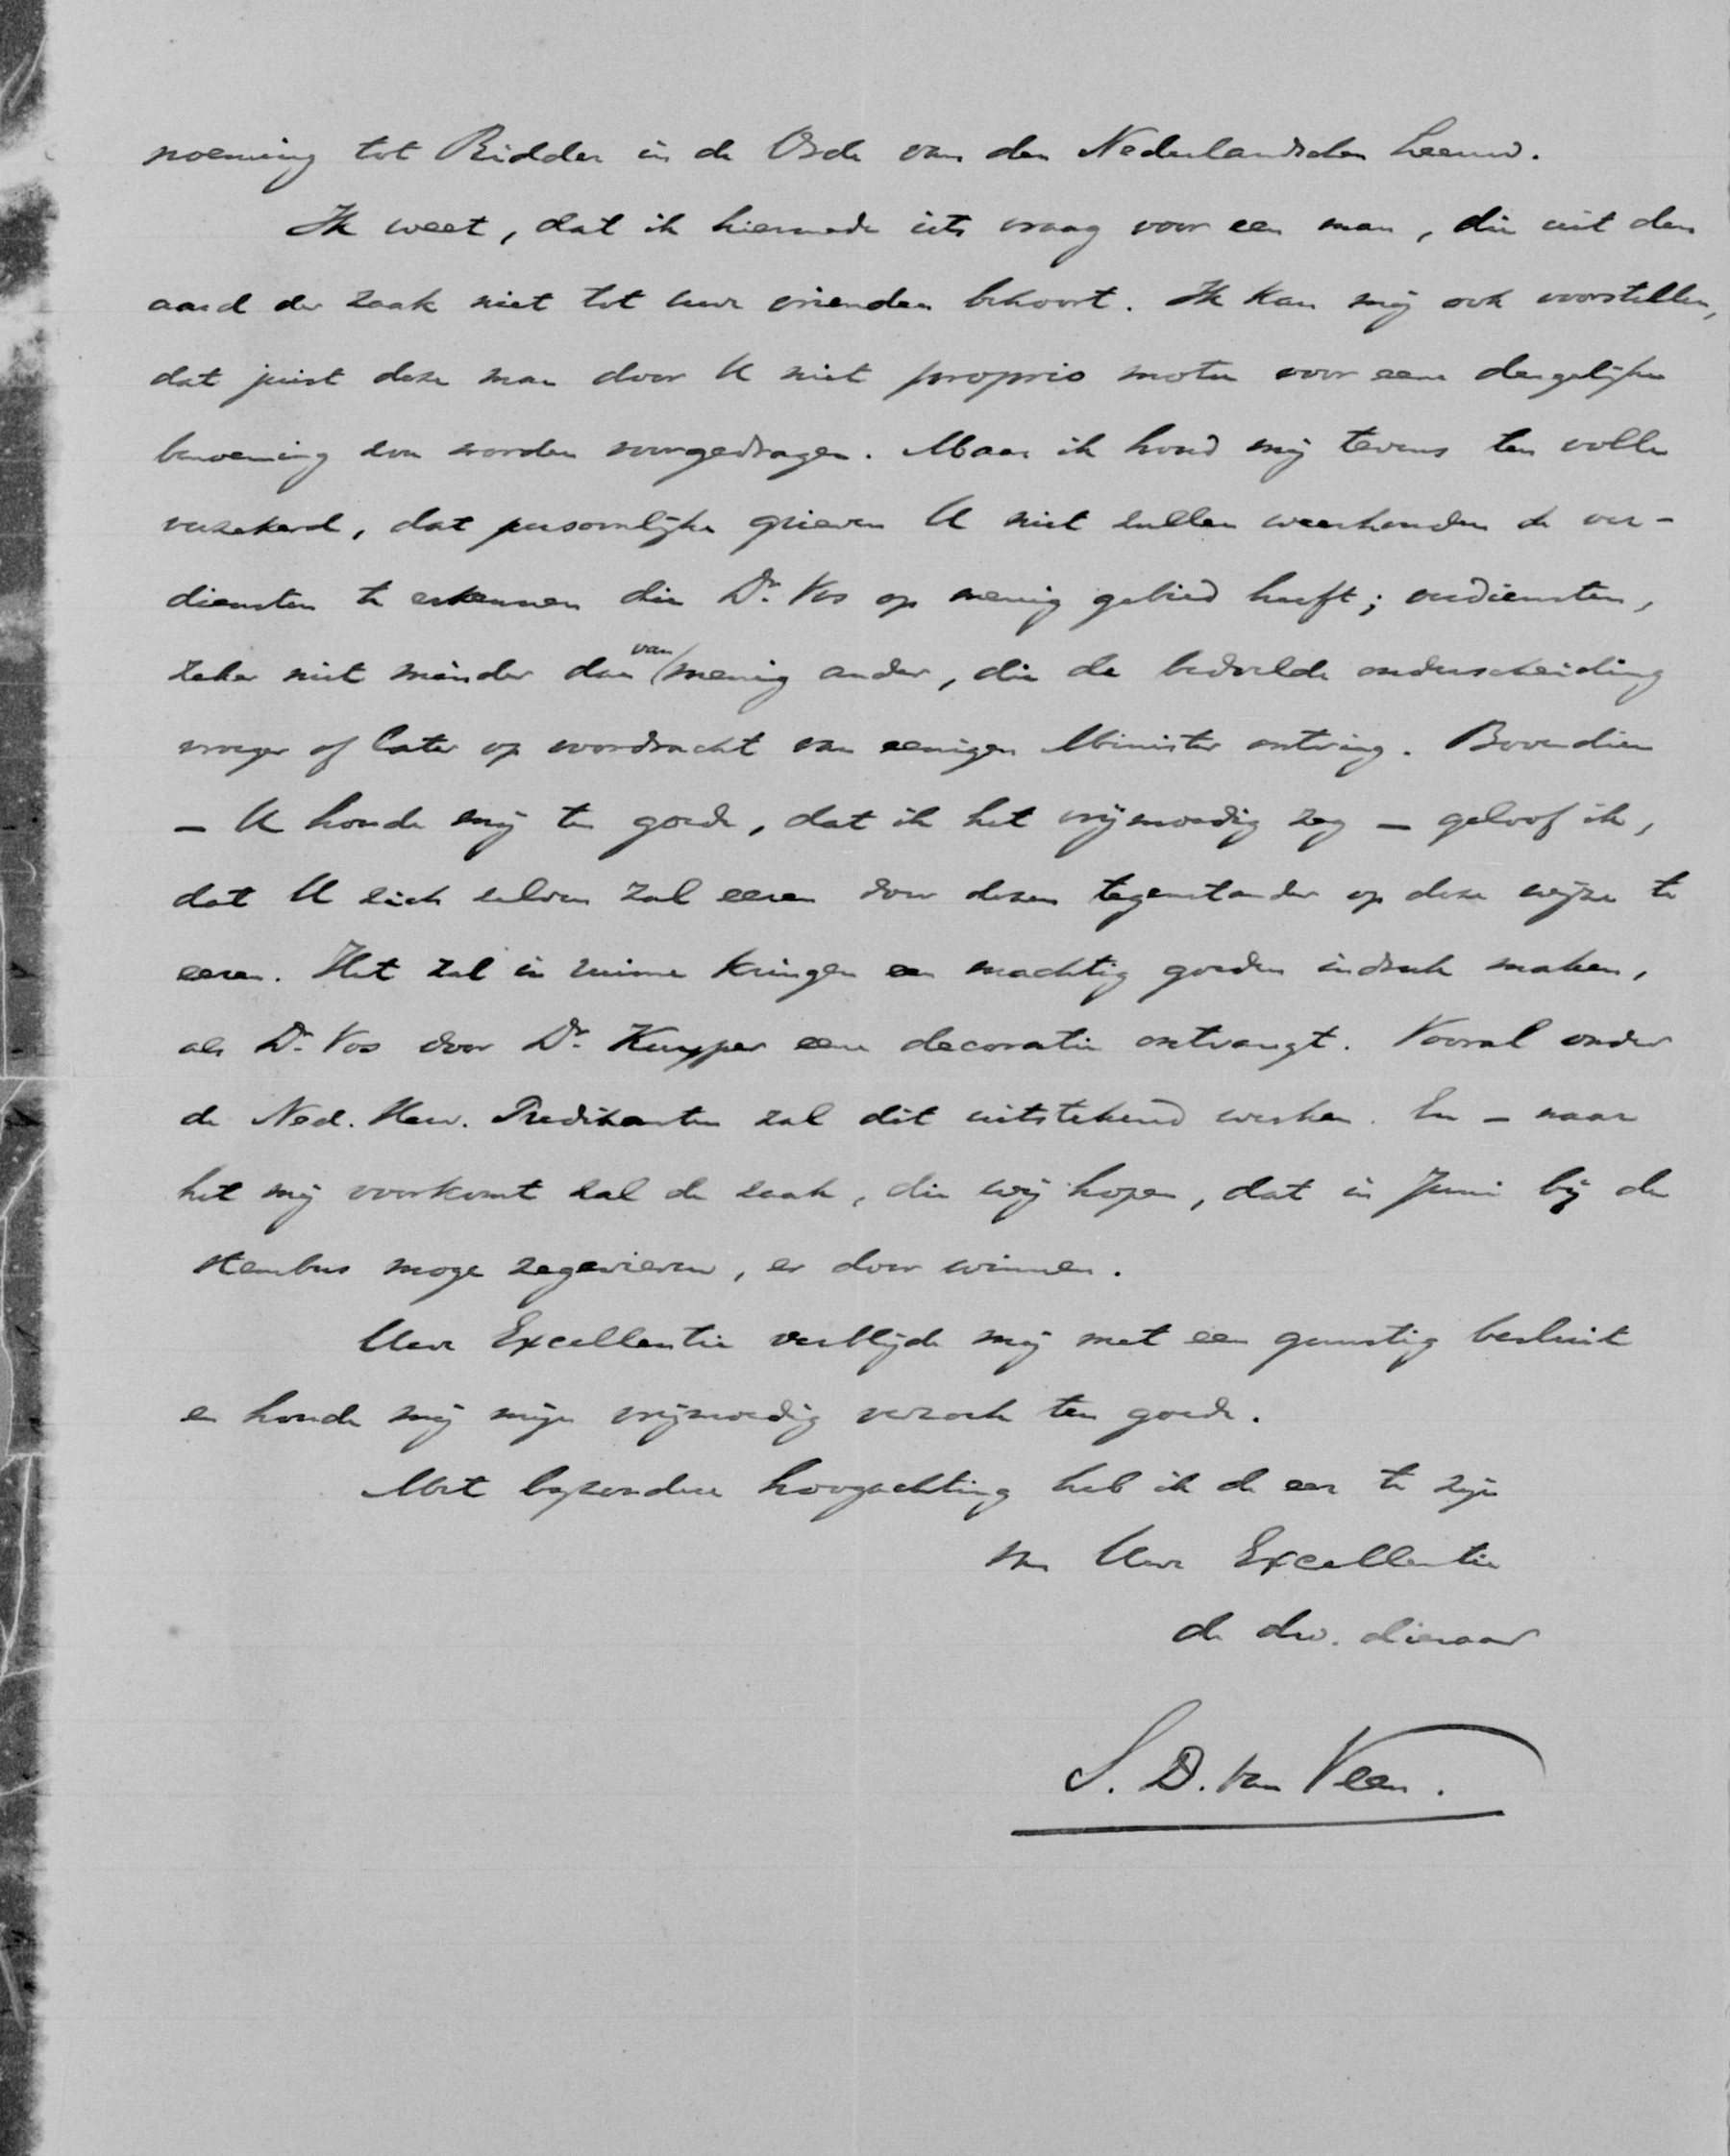 noeming tot Ridder in de Orde van den Nederlandschen Leeuw.
Ik weet, dat ik hiermede iets vraag voor een man, die uit den
aard der zaak niet tot uwe vrienden behoort. Ik kan mij ook voorstellen,
dat juist deze man door U niet proprio motu voor eene dergelijke
benoeming zou worden voorgedragen. Maar ik houd mij tevens ten volle
verzekerd, dat persoonlijke grieven U niet zullen weerhouden de ver-
diensten te erkennen die Dr. Vos op menig gebied heeft; verdiensten,
zeker niet minder dan van menig ander, die de bedoelde onderscheiding
vroeger of later op voordracht van eenigen Minister ontving. Bovendien
— U houde mij ten goede, dat ik het vrijmoedig zeg — geloof ik,
dat U zich zelven zal eeren door dezen tegenstander op deze wijze te
eeren. Het zal in ruime kringen een machtig goeden indruk maken,
als Dr. Vos door Dr. Kuyper eene decoratie ontvangt. Vooral onder
de Ned. Herv. Predikanten zal dit uitstekend werken. En — naar
het mij voorkomt zal de zaak, die wij hopen, dat in Juni bij de
stembus moge zegevieren, er door winnen.
Uwe Excellentie verblijde mij met een gunstig besluit
en houde mij mijn vrijmoedig verzoek ten goede.
Met bijzondere hoogachting heb ik de eer te zijn
van Uwe Excellentie
de dw. dienaar
S. D. van Veen.